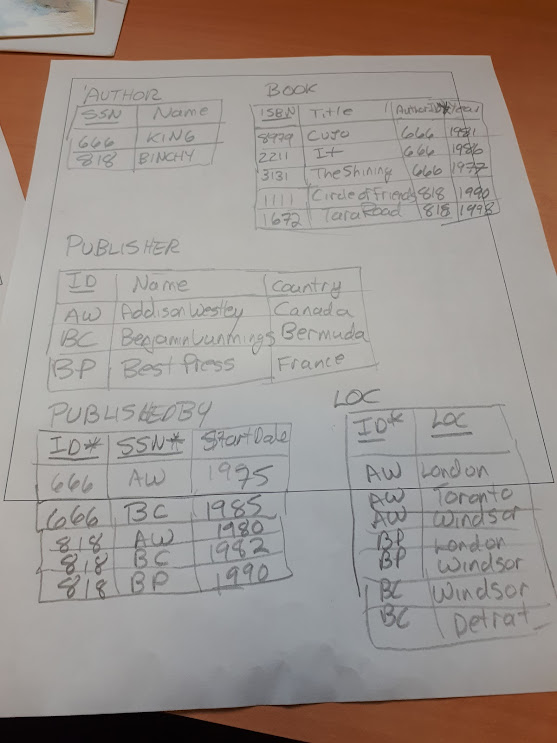 AUTHOR
SSN Name
666 KING
818 BINCHY
BOOK
ISBN Title AuthorID* Year
8979 CUJO 666 1981
2211 It 666 1986
3131 The Shining 666 1977
1111 Circle of Friends 818 1990
1672 Tara Road 818 1998
PUBLISHER
ID Name Country
AW Addison Westley Canada
BC Benjamin Cummings Bermuda
BP Best Press France
PUBLISHEDBY
ID* SSN* StartDate
666 AW 1975
666 BC 1985
818 AW 1980
818 BC 1982
818 BP 1990
LOC
ID* LOC
AW London
AW Toronto
AW Windsor
BP London
BP Windsor
BC Windsor
BC Detroit